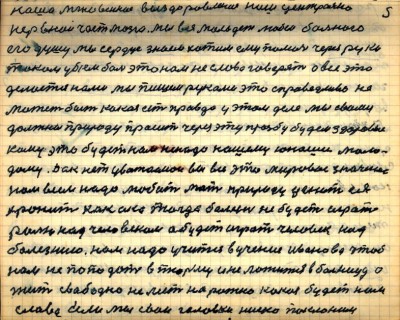 наша мгновенное выздоровление наш центрально 5
нервной част мозга. мы все молодеж любов больного
его душу мы сердце знаем хотим ему помоч через руки
током убъем бол это нам не слово говорят а все это
делается нами мы пишем руками это справедливо не
может быт какая ест правда у этом деле мы сваи
должни природу просит через эту прозбу будеш здоровие
кому это будет нам нашему юноше моло-
дому. Как нет уважаемои вы все это мировое значение
нам всем надо любит мат природу ценит ея
хронит как око тогда болезн не будет играт
рол над человеком а будет играт человек над
болезнию. нам надо учится в учение Иванова чтоб
нам не поподат в тюрму и не ложится в болницу а
жит свободно не лезт на рожно какая будет нам
слава если мы сваи головки низко поклоним